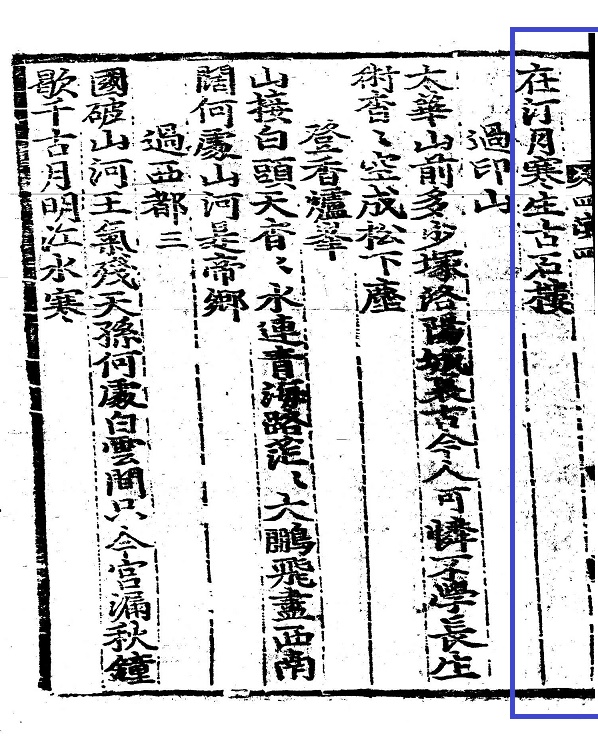 在汀月寒生古石樓
過印山
太華山前多少塚洛陽城裏古今人可憐不學長生
術杳〻空成松下塵
登香爐峯
山接白頭天杳〻水連青海路茫〻大鵬飛盡西南
闊何處山河是帝鄉
過西都三
國破山河王氣殘天孫何處白雲間只今宮漏秋鐘
歇千古月明江水寒